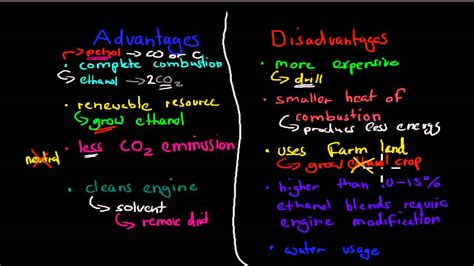 Advantages
petrol → CO or C
complete combustion
ethanol → 2CO2
renewable resource
grow ethanol
less CO2 emmission
neutral
cleans engine
solvent
remove dirt
Disadvantages
more expensive
drill
smaller heat of
combustion
produces less energy
uses Farm land
grow ethanol crop
higher than 10-15%
ethanol blends require
engine modification
water usage